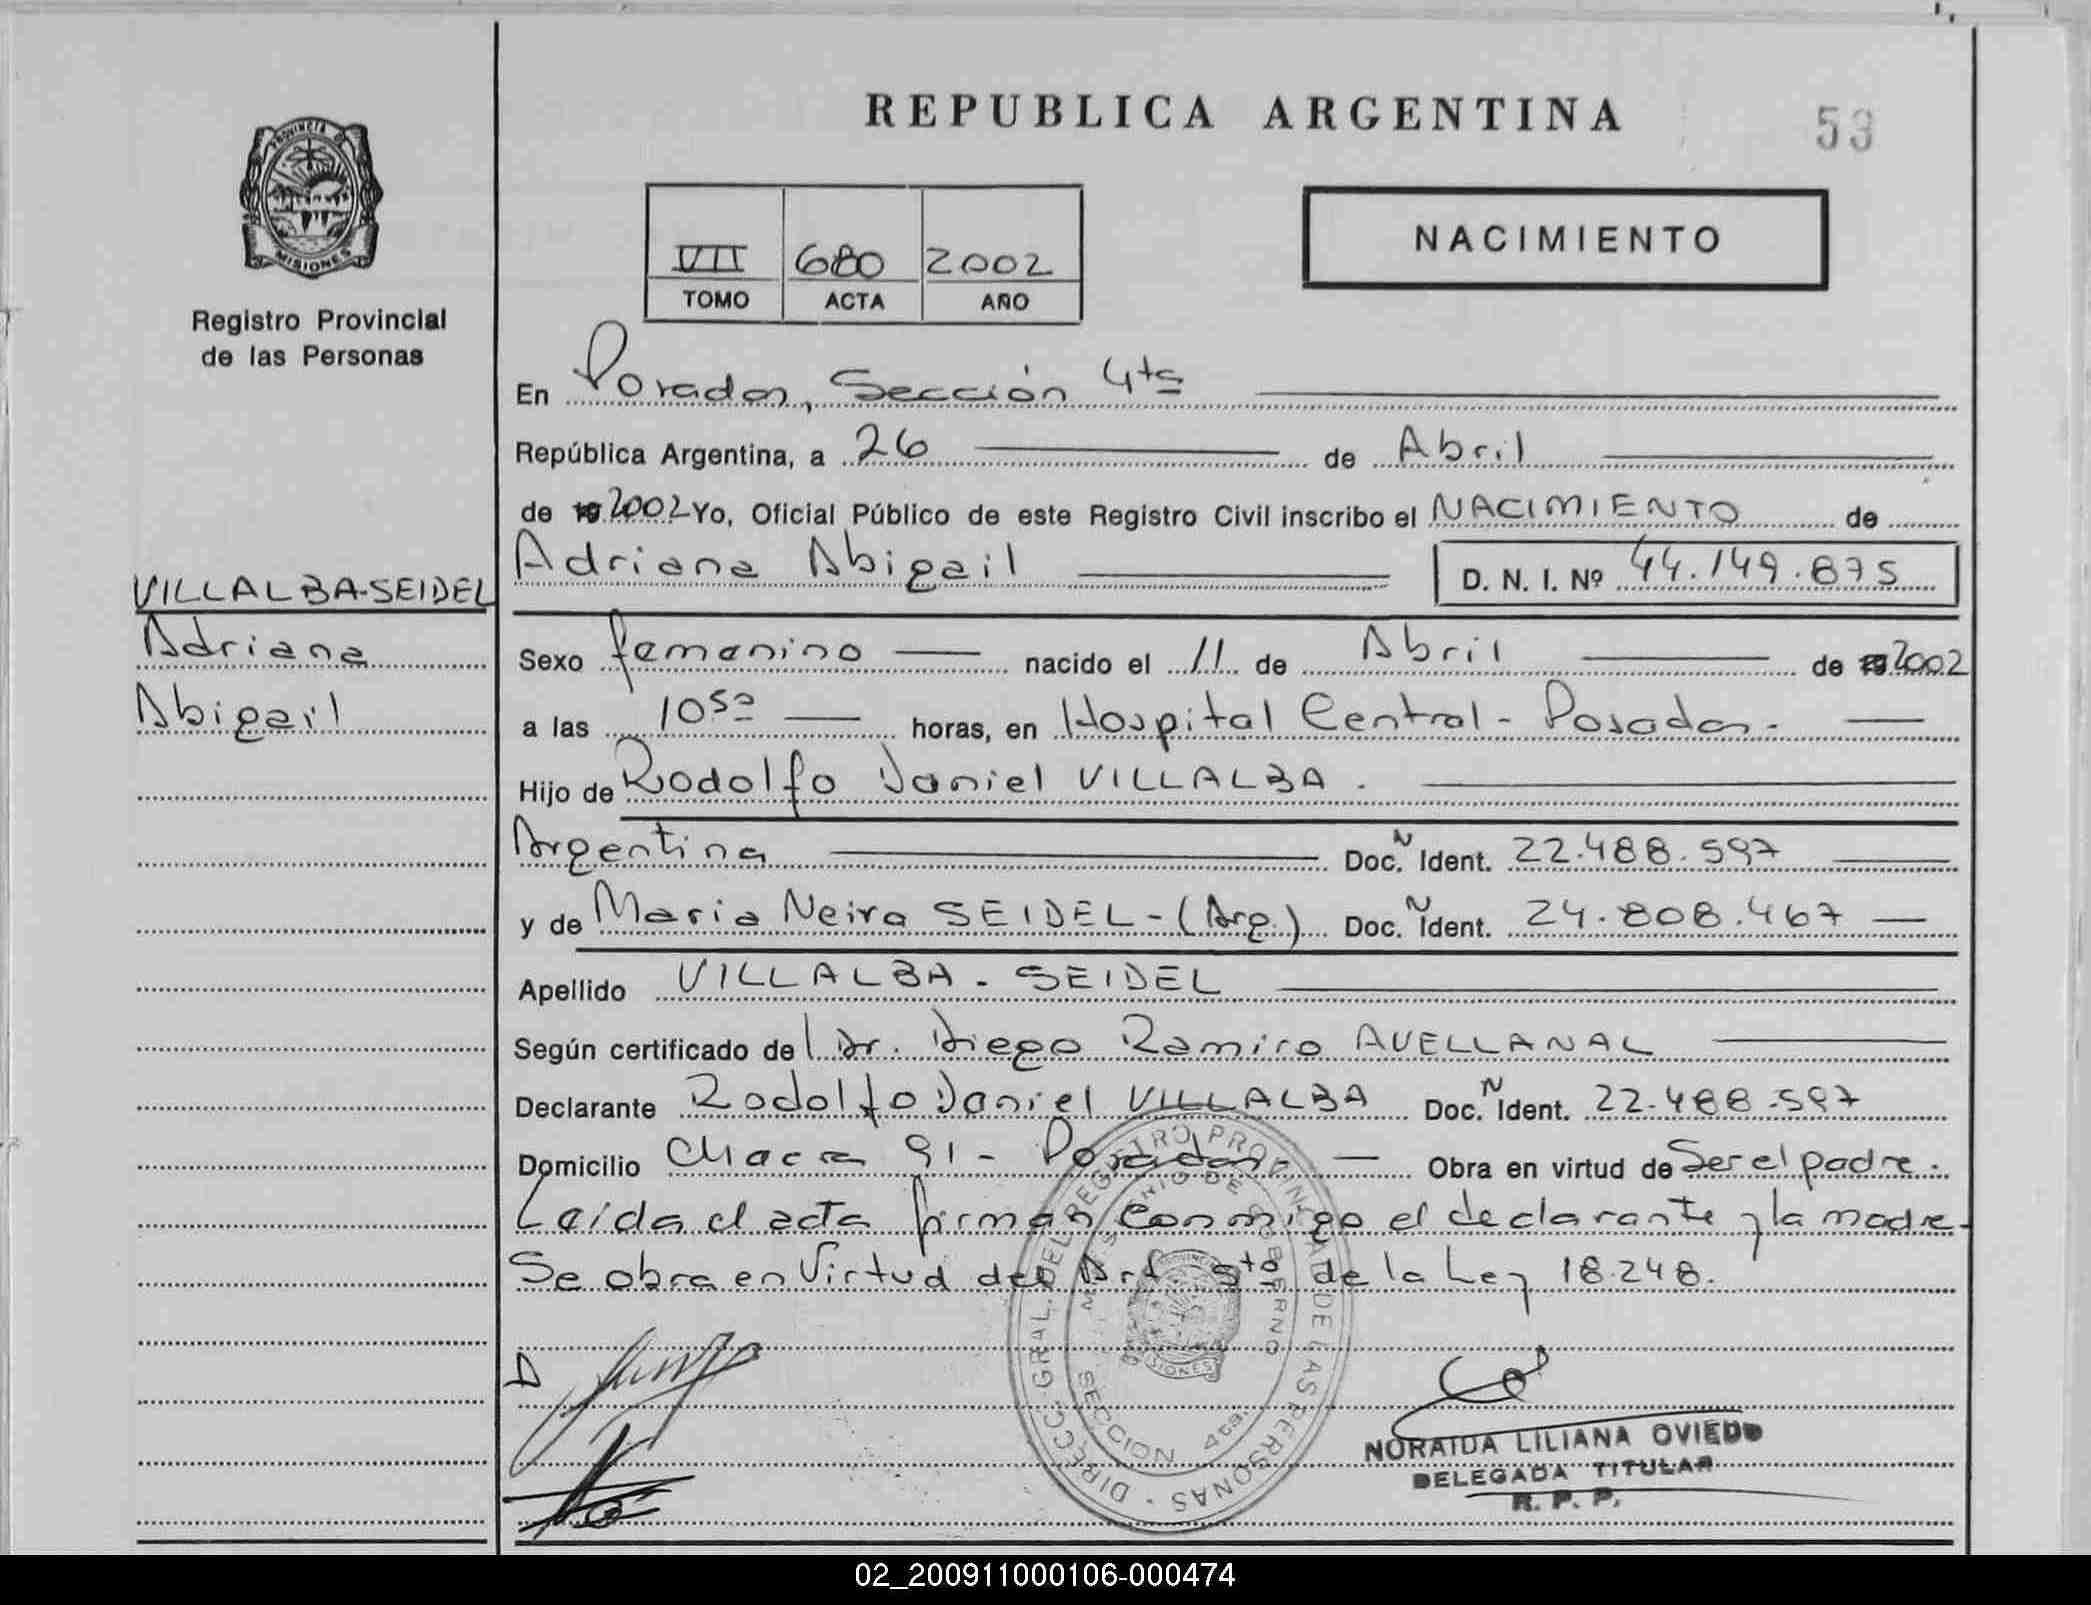 REPUBLICA ARGENTINA
53
PROVINCIA DE
MISIONES
Registro Provincial
de las Personas
VII 680 2002
TOMO ACTA AÑO
NACIMIENTO
En Posadas, Sección 4ta
República Argentina, a 26 de Abril
de 19 2002 Yo, Oficial Público de este Registro Civil inscribo el NACIMIENTO de
Adriana Abigail D. N. I. Nº 44.149.875
VILLALBA-SEIDEL
Adriana
Abigail
Sexo femenino nacido el 11 de Abril de 19 2002
a las 10 50 horas, en Hospital Central - Posadas.-
Hijo de Rodolfo Daniel VILLALBA.
Argentina Doc. N Ident. 22.488.597
y de Maria Neira SEIDEL - (Arg.) Doc. N Ident. 24.808.467
Apellido VILLALBA - SEIDEL
Según certificado del Dr. Diego Ramiro AVELLANAL
Declarante Rodolfo Daniel VILLALBA Doc. N Ident. 22.488.597
Domicilio Chacra 91 - Posadas - Obra en virtud de Ser el padre.
Leída el acta firman conmigo el declarante y la madre.
Se obra en Virtud del Art 5to de la Ley 18.248.
DIRECC. GRAL. DEL REGISTRO PROVINCIAL DE LAS PERSONAS
MINISTERIO DE GOBIERNO
SECCION 4ta.
MISIONES
NORAIDA LILIANA OVIEDO
DELEGADA TITULAR
R. P. P.
02_200911000106-000474